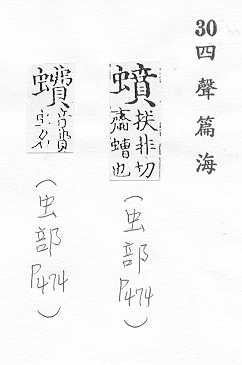 30 四聲篇海
蟦 扶非切
齏螬也
(虫部 P474)
音費
(虫部 P474)